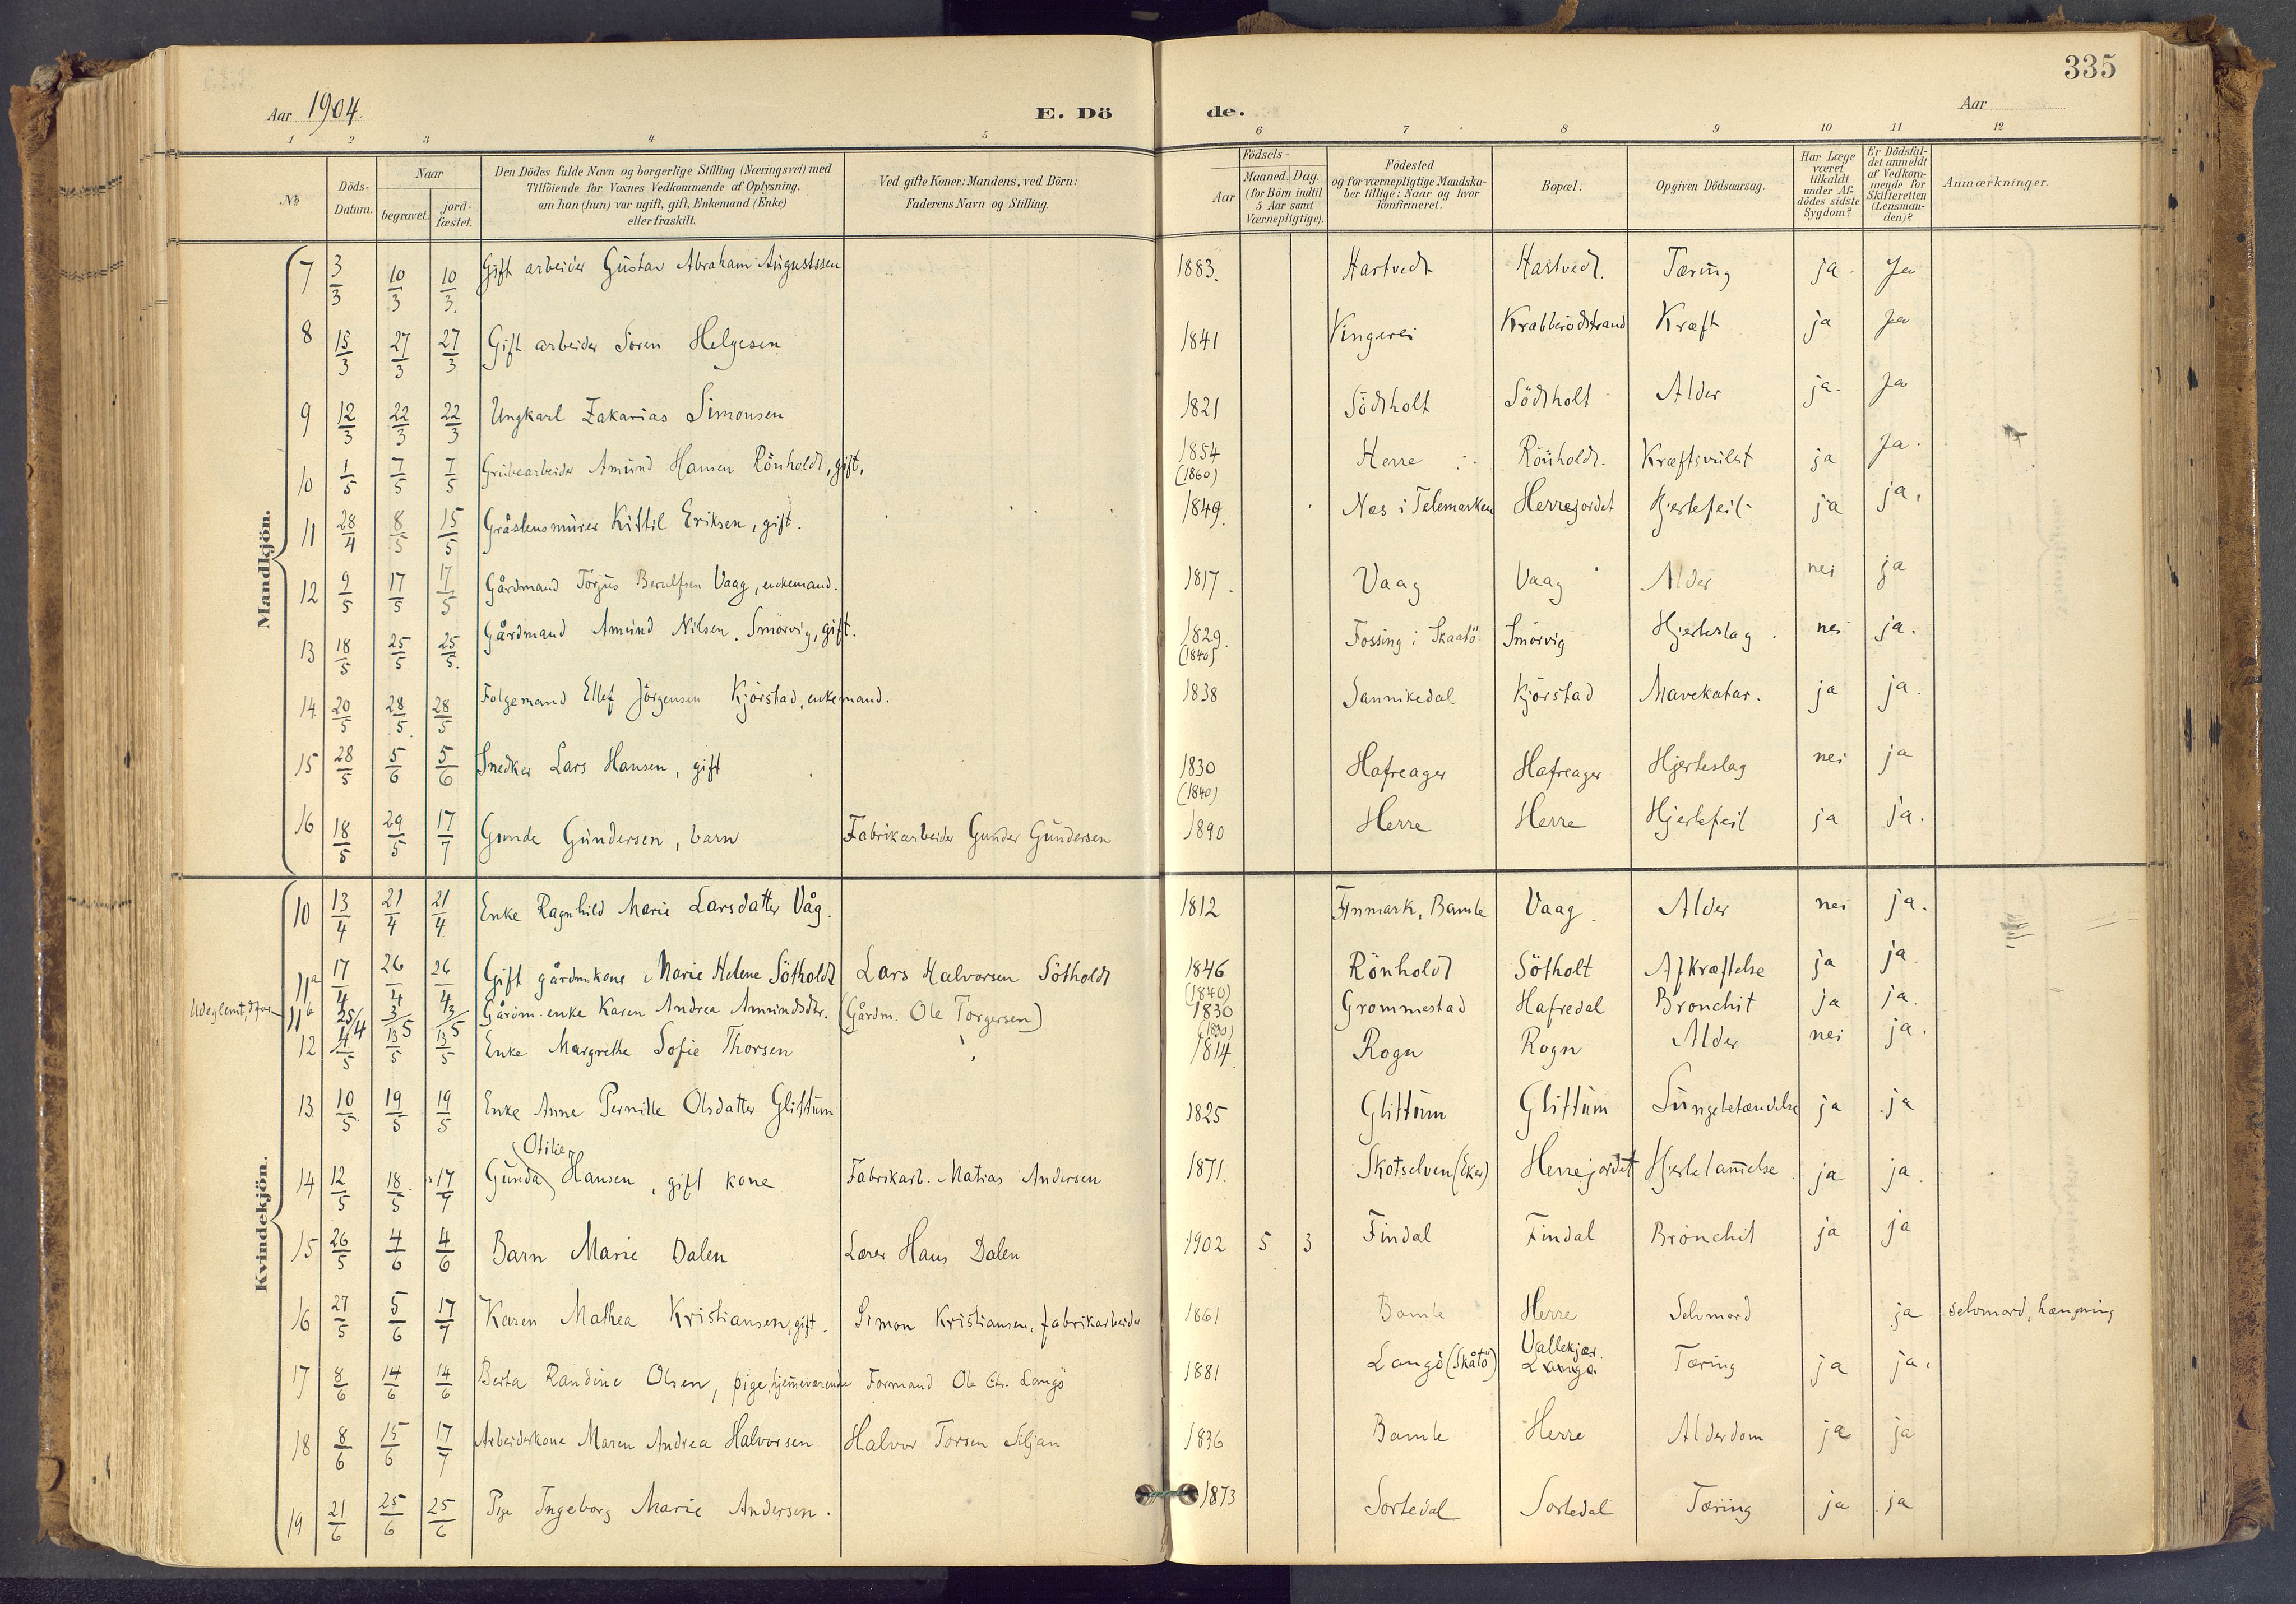 335
Aar 1904. E. Dö de. Aar
1 2 3 4 5 6 7 8 9 10 11 12
№ Döds-Datum. Naar begravet. jord-fæstet. Den Dödes fulde Navn og borgerlige Stilling (Næringsvei) med Tilföiende for Voxnes Vedkommende af Oplysning, om han (hun) var ugift, gift, Enkemand (Enke) eller fraskilt. Ved gifte Koner: Mandens, ved Börn: Faderens Navn og Stilling. Födsels- Aar Maaned. Dag. (for Börn indtil 5 Aar samt Værnepligtige). Födested og for værnepligtige Mandska-ber tillige: Naar og hvor Konfirmeret. Bopæl. Opgiven Dödsaarsag. Har Læge været tilkaldt under Af-dödes sidste Sygdom? Er Dödsfal-det anmeldt af Vedkom-mende for Skifteretten (Lensman-den)? Anmærkninger.
Mandkjön.
7 3/3 10/3 10/3. Gift arbeider Gustav Abraham Augustssen 1883. Hartvedt Hartvedt. Tæring ja. Ja
8 15/3 27/3 27/3 Gift arbeider Soren Helgesen 1841 Vingerei Krabberödstrand Kræft ja Ja
9 12/3 22/3 22/3 Ungkarl Zakarias Simonsen 1821 Södtholt Södtholt Alder ja. Ja
10 1/5 7/5 7/5 Grubearbeider Amund Hansen Rönholdt, gift, 1854 (1860) Herre Rönholdt. Kræftsvulst ja Ja.
11 28/4 8/5 15/5 Gråstensmurer Kittil Eriksen, gift. 1849. Nes i Telemarken Herrejordet Hjertefeil ja ja.
12 9/5 17/5 17/5 Gårdmand Torjus Berulfsen Vaag, enkemand. 1817. Vaag Vaag Alder nei ja
13 18/5 25/5 25/5. Gårdmand Amund Nilsen Smörvig, gift. 1829. (1840) Fossing i Skaatö Smörvig Hjerteslag. nei ja.
14 20/5 28/5. 28/5 Folgemand Ellef Jörgensen Kjörstad, enkemand. 1838 Sannikedal Kjörstad Mavekatar. ja ja.
15 28/5 5/6 5/6 Snedker Lars Hansen, gift 1830 (1840) Hafreager Hafreager Hjerteslag nei ja
16 18/5 29/5 17/7 Gunde Gundersen, barn Fabrikarbeider Gunder Gundersen 1890 Herre Herre Hjertefeil ja ja.
Kvindekjön.
10 13/4 21/4 21/4. Enke Ragnhild Marie Larsdatter Våg. 1812 Finmark, Bamle Vaag. Alder nei ja.
11a 17/4 26/4 26/4 Gift gårdmkone Marie Helene Sötholdt Lars Halvorsen Sötholdt 1846 (1840) Rönholdt Sötholt Afkræftelse ja ja.
11b 25/4 3/5 3/5 Gårdm. enke Karen Andrea Amundsdtr. (Gårdm. Ole Torgersen) 1830 (1830) Grommestad Hafredal Bronchit ja ja.
12 4/5 13/5 13/5 Enke Margrethe Sofie Thorsen 1814. Rogn Rogn Alder nei ja.
13 10/5 19/5 19/5 Enke Anne Pernille Olsdatter Glittum 1825 Glittum Glittum Lungebetændelse ja ja
Otilie
14 12/5 18/5 17/7 Gunda Hansen, gift kone Fabrikarb. Matias Andersen 1871. Skotselven (Eker) Herrejordet Hjertelam̄else ja ja.
15 26/5 4/6 4/6 Barn Marie Dalen Lærer Hans Dalen 1902 5 3 Findal Findal Bronchit ja ja
16 27/5 5/6 17/7 Karen Mathea Kristiansen, gift. Simon Kristiansen, fabrikarbeider 1861 Bamle Herre Selvmord ja selvmord, hængning
17 8/6 14/6 14/6 Berta Randine Olsen, pige, hjem̄eværende Formand Ole Chr. Langö 1881 Langö (Skåtö) Vallekjær. Langö Tæring ja ja.
18 8/6 15/6 17/7 Arbeiderkone Maren Andrea Halvorsen Halvor Torsen Siljan 1836 Bamle Herre Alderdom ja ja
19 21/6 25/6 25/6 Pige Ingeborg Marie Andersen. 1873 Sortedal Sortedal Tæring ja ja